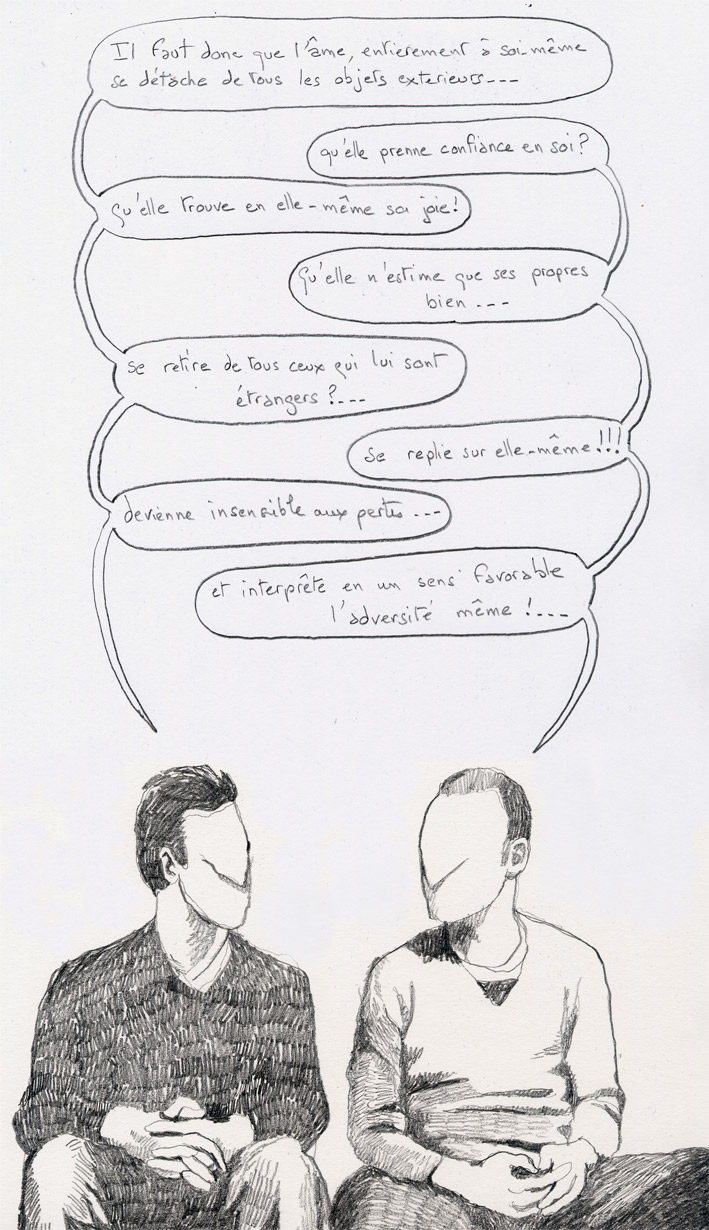 Il faut donc que l'âme, entierement à soi-même
se détache de tous les objets exterieurs---
qu'elle prenne confiance en soi?
Qu'elle trouve en elle-même sa joie!
Qu'elle n'estime que ses propres
bien ---
se retire de tous ceux qui lui sont
étrangers ?---
se replie sur elle-même!!!
devienne insensible aux pertes ---
et interprête en un sens favorable
l'adversité même !---